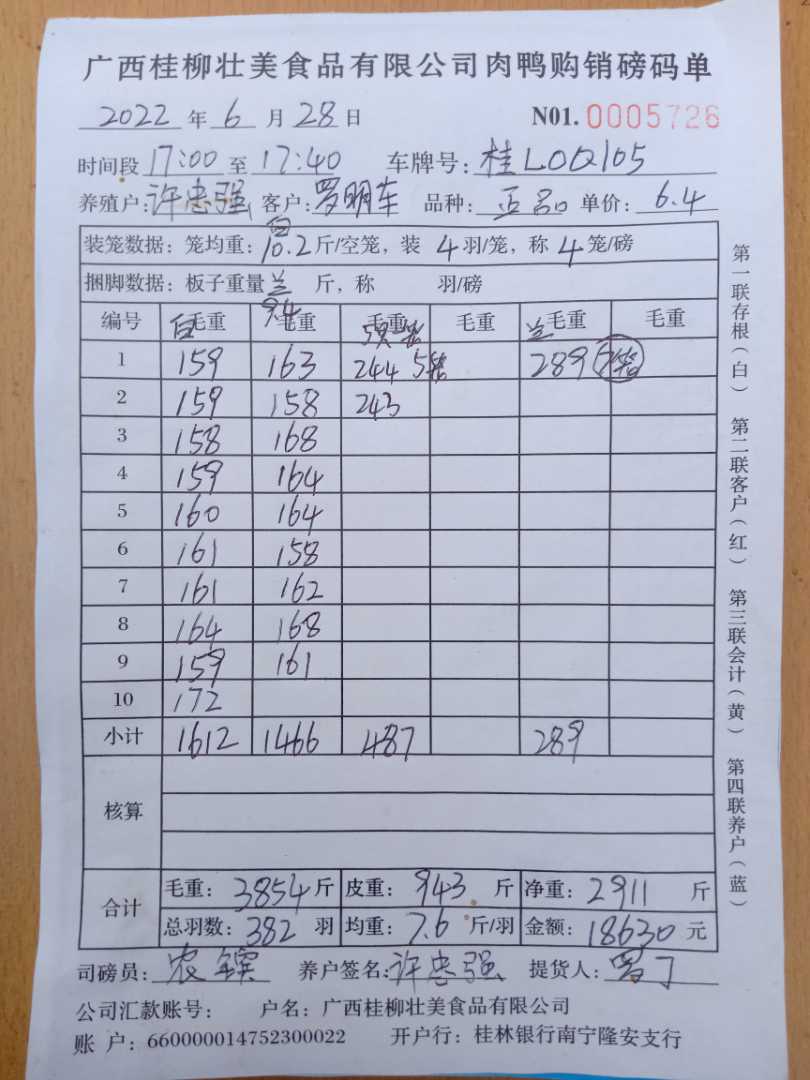 广西桂柳壮美食品有限公司肉鸭购销磅码单
2022 年 6 月 28 日 N01. 0005726
时间段 17:00 至 17:40 车牌号: 桂L0Q105
养殖户: 许忠强 客户: 罗明车 品种: 正品 单价: 6.4
装笼数据: 笼均重: 白 10.2 斤/空笼, 装 4 羽/笼, 称 4 笼/磅
捆脚数据: 板子重量 兰 9.4 斤, 称 羽/磅
编号 白 毛重 毛重 毛重 毛重 兰 毛重 毛重
1 159 163 244 5笼 289
2 159 158 243
3 158 168
4 159 164
5 160 164
6 161 158
7 161 162
8 164 168
9 159 161
10 172
小计 1612 1466 487 289
核算
合计 毛重: 3854 斤 皮重: 943 斤 净重: 2911 斤
总羽数: 382 羽 均重: 7.6 斤/羽 金额: 18630 元
司磅员: 农 养户签名: 许忠强 提货人: 罗丁
公司汇款账号: 户名: 广西桂柳壮美食品有限公司
账 户: 660000014752300022 开户行: 桂林银行南宁隆安支行
第一联存根(白) 第二联客户(红) 第三联会计(黄) 第四联养户(蓝)